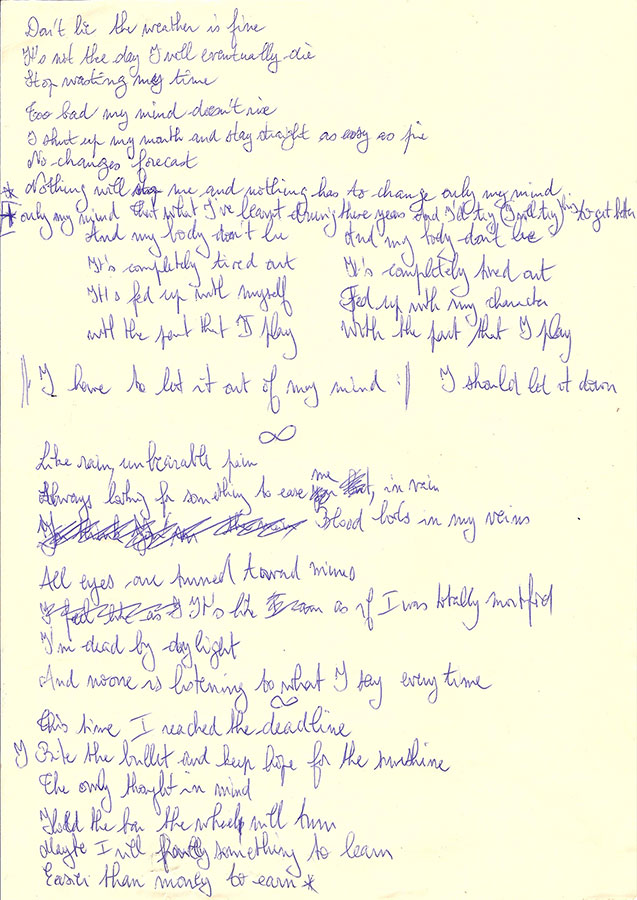 Don't lie the weather is fine
It's not the day I will eventually die
Stop wasting my time
Too bad my mind doesn't rise
I shut up my mouth and stay straight as easy as pie
No changes forecast
* Nothing will stop me and nothing has to change only my mind
* only my mind that what I've learnt during these years and I'd try (I will try) to get better
And my body don't lie
It's completely tired out
It's fed up with myself
with the part that I play
And my body don't lie
It's completely tired out
Fed up with my character
With the part that I play
||: I have to let it out of my mind :|| I should let it down
∞
Like rain, unbearable pain
Always looking for something to ease me, in vain
Blood boils in my veins
All eyes are turned toward mines
It's like as if I was totally mortified
I'm dead by daylight
And noone is listening to what I say every time
∞
This time I reached the deadline
I Bite the bullet and keep hope for the sunshine
The only thought in mind
Hold the bar the wheel will turn
Maybe I will finally something to learn
Easier than money to earn *